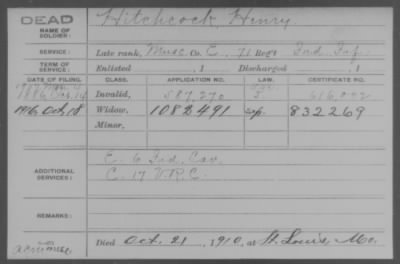 DEAD
NAME OF SOLDIER: Hitchcock, Henry.
SERVICE: Late rank, Musc Co. E, 71 Reg't Ind. Inf.
TERM OF SERVICE: Enlisted , 1 Discharged , 1
DATE OF FILING. CLASS. APPLICATION NO. LAW. CERTIFICATE NO.
Invalid, 587,270
1916 Oct. 18 Widow, 1082491 832269
Minor,
ADDITIONAL SERVICES: E. 6 Ind. Cav.
C. 17 V.R.C.
REMARKS:
Died Oct. 21, 1910, at St. Louis Mo.